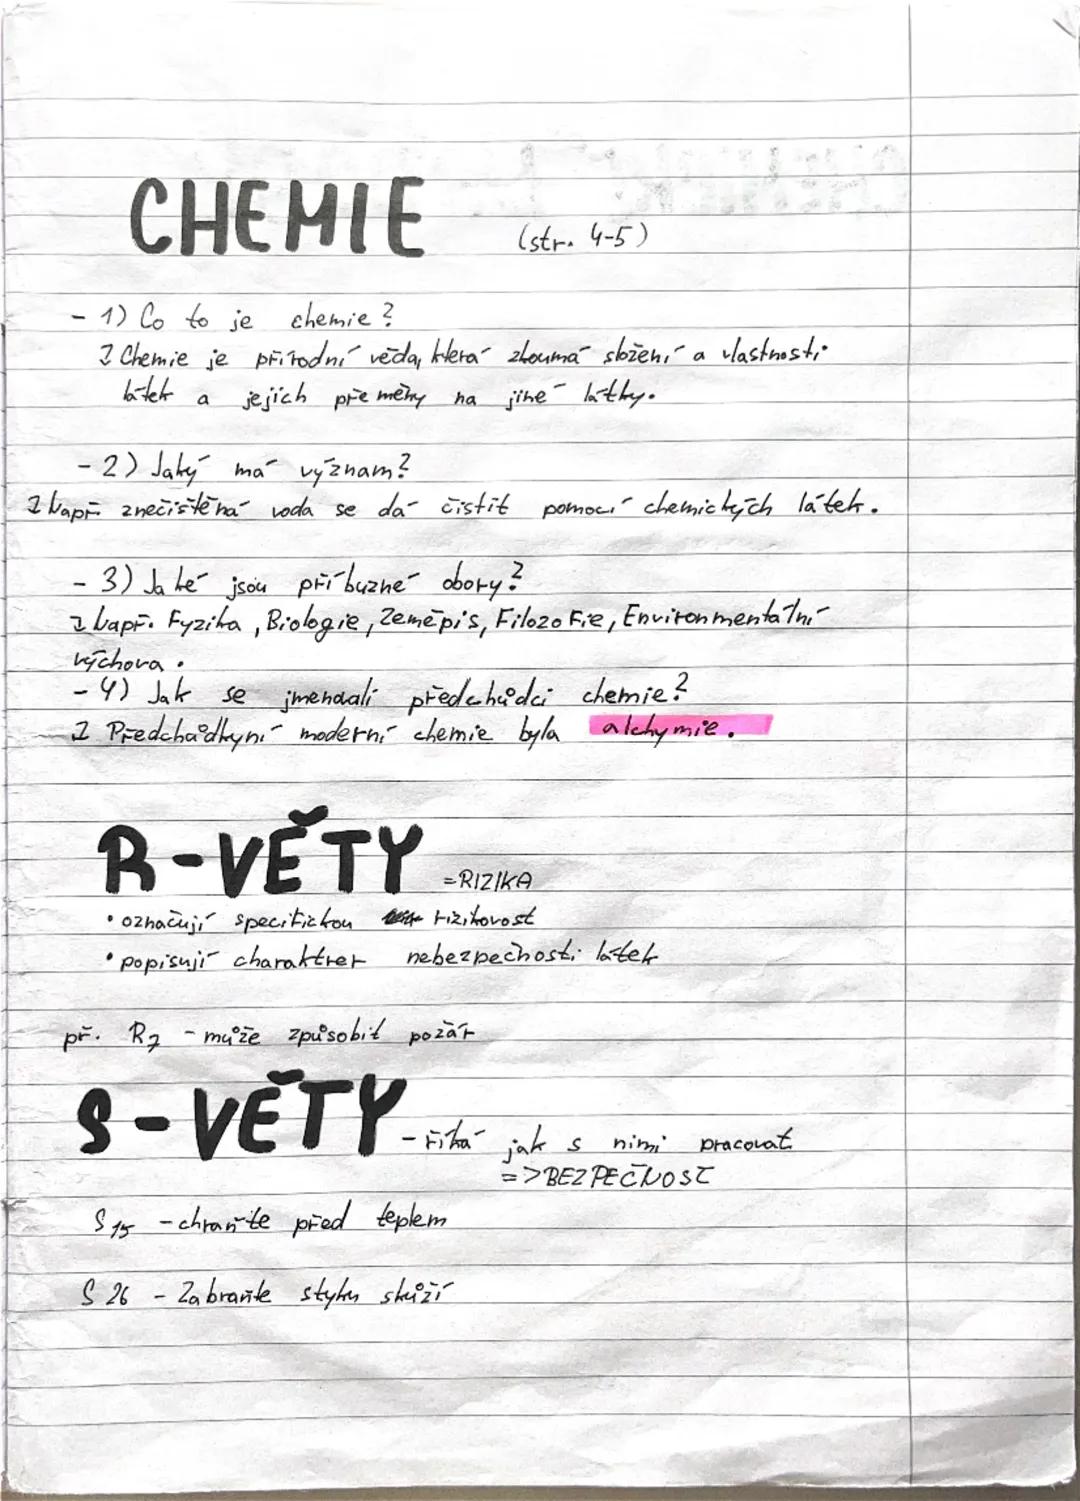 CHEMIE (str. 4-5)
- 1) Co to je chemie?
Chemie je přírodní věda, která zkoumá složení a vlastnosti
látek a jejich přeměny na jiné látky.
- 2) Jaký má význam?
Např. znečištěná voda se dá čistit pomocí chemických látek.
- 3) Jaké jsou příbuzné obory?
Např. Fyzika, Biologie, Zeměpis, Filozofie, Environmentální
výchova.
- 4) Jak se jmenovali předchůdci chemie?
Předchůdkyní moderní chemie byla alchymie.
R-VĚTY =RIZIKA
• označují specifickou rizikovost
• popisují charaktrer nebezpečnosti látek
př. R7 - může způsobit požár
S-VĚTY - říká jak s nimi pracovat
=> BEZPEČNOST
S 15 - chraňte před teplem
S 26 - Zabraňte styku skůží